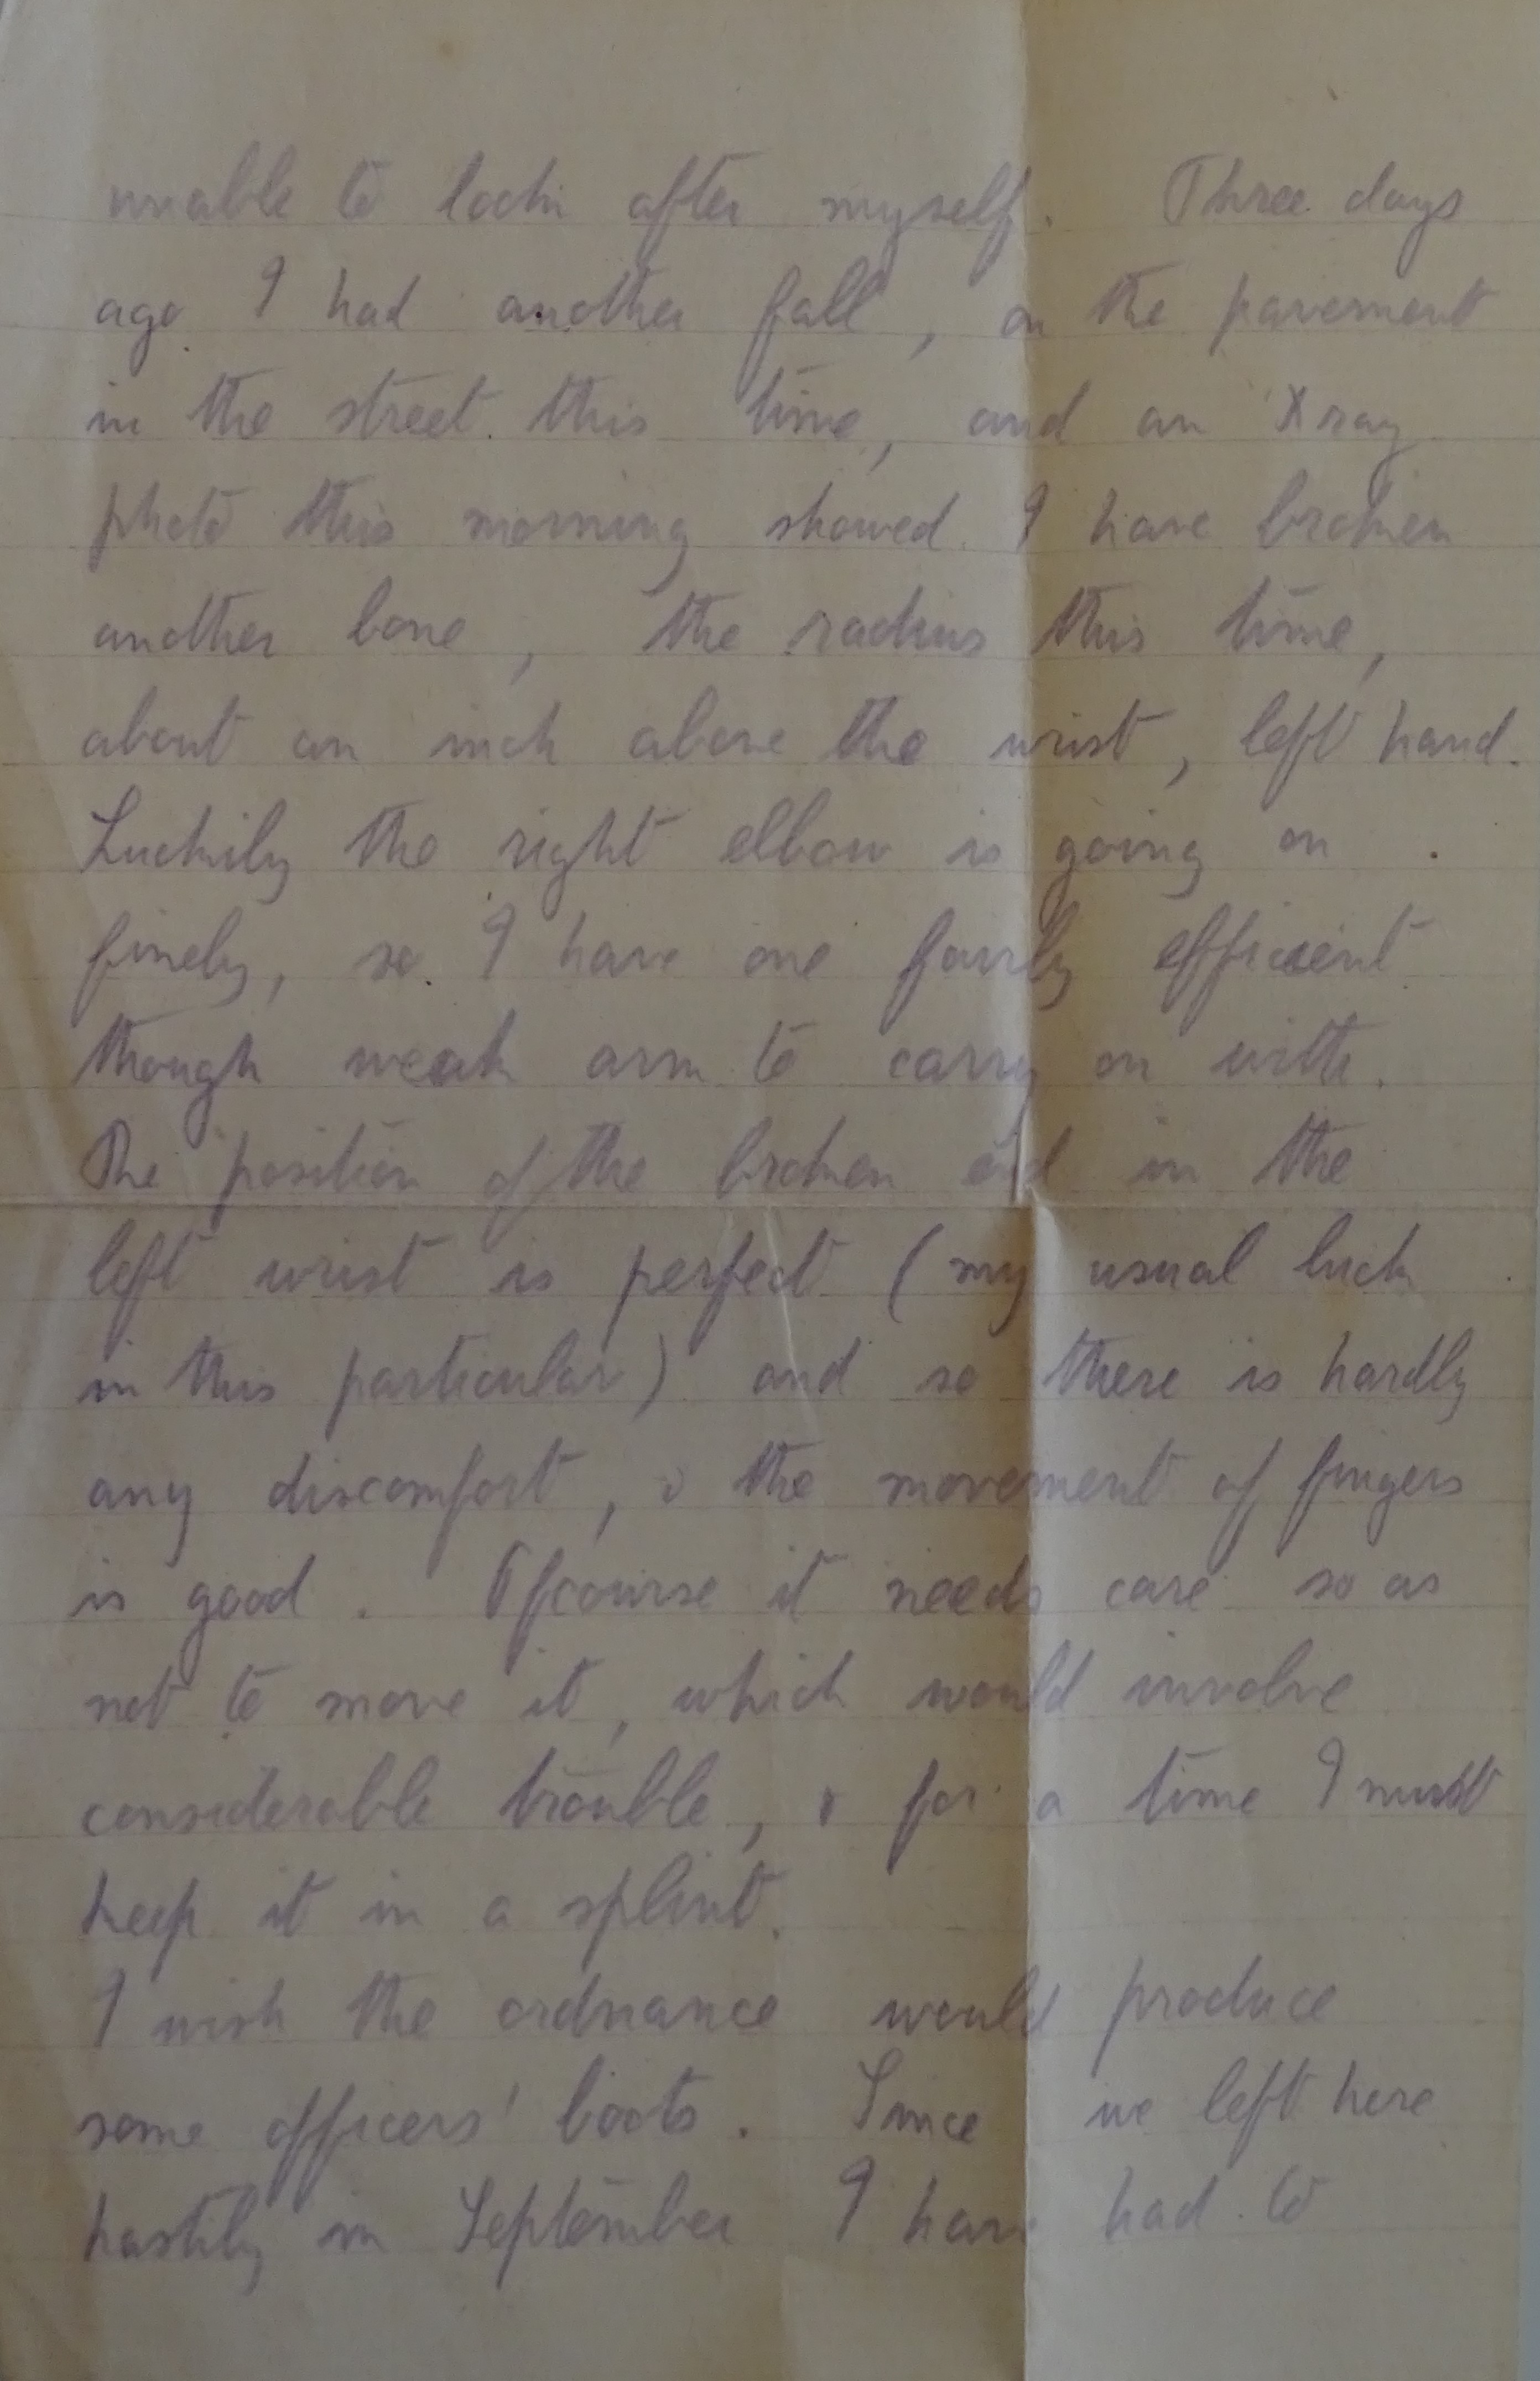 unable to look after myself. Three days
ago I had another fall, on the pavement
in the street this time, and an X ray
photo this morning showed I have broken
another bone, the radius this time,
about an inch above the wrist, left hand.
Luckily the right elbow is going on
finely, so I have one fairly efficient
though weak arm to carry on with.
The position of the broken end in the
left wrist is perfect (my usual luck
in this particular) and so there is hardly
any discomfort, & the movement of fingers
is good. Ofcourse it needs care so as
not to move it, which would involve
considerable trouble, & for a time I must
keep it in a splint.
I wish the ordnance would produce
some officers' boots. Since we left here
hastily in September I have had to